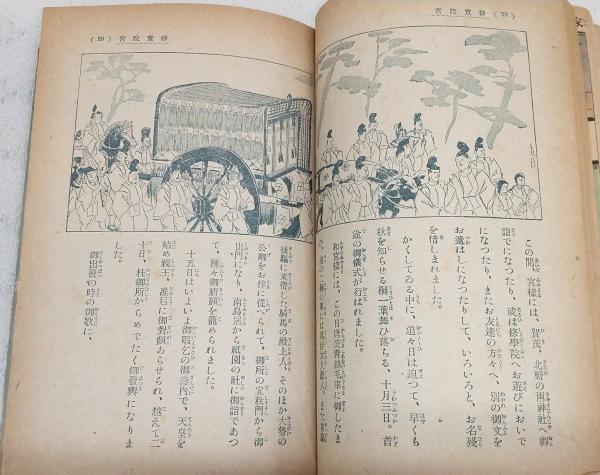 静寛院宮 (38)
この間、宮様には、賀茂、北野の両神社へ御
詣でになつたり、或は修學院へお遊びにおいで
になつたり、またお友達の方々へ、別の御文を
お遣はしになつたりして、いろいろと、お名残
を惜しまれました。
かくしてゐる中に、追々日は迫つて、早くも
秋を知らせる桐一葉舞ひ落ちる、十月三日。首
途の御儀式が行はれました。
和宮様には、この日唐庇青絲毛車に御したま
(39) 静寛院宮
後騎に束帯した騎馬の殿上人、そのほか大勢の
公卿をお伴に従へられて、御所の宜秋門から御
出門になり、南鳥居から祇園の社に御詣であつ
て、種々御祈願を籠められました。
十五日はいよいよ御暇乞の御參内で、天皇を
始め親王、准后に御對顔あらせられ、越えて二
十日、桂御所からめでたく御發輿になりま
した。
御出發の時の御歌に、